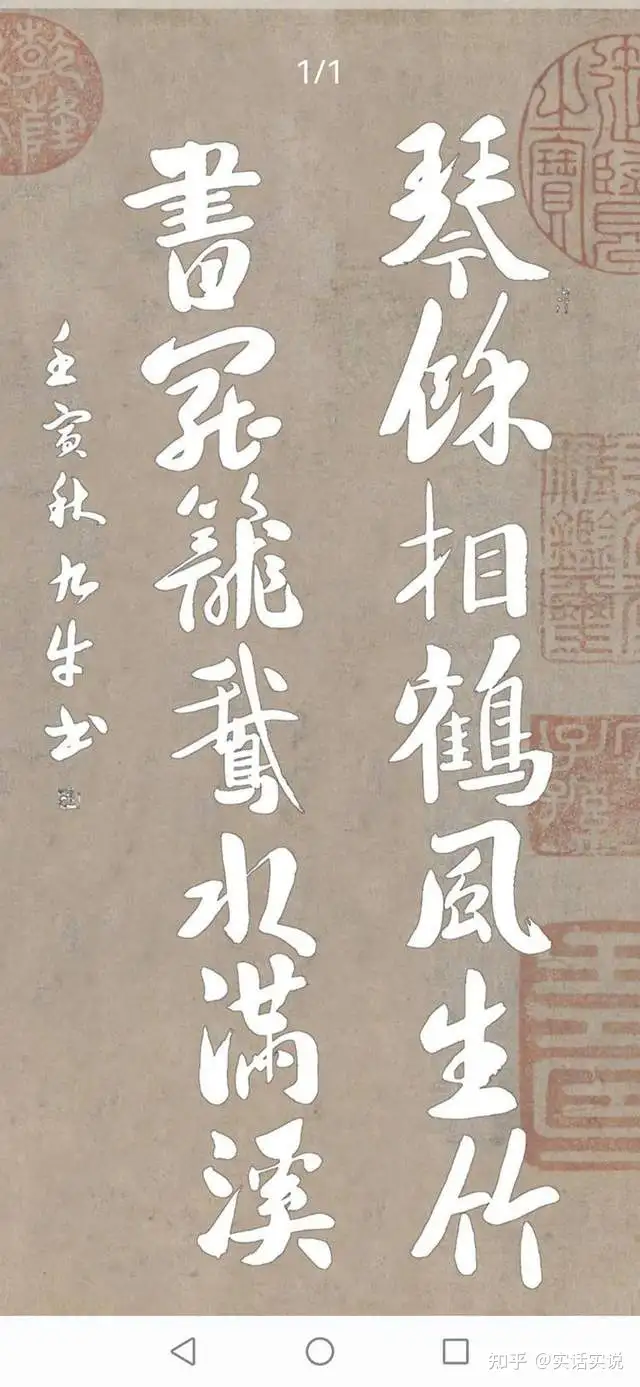 1/1
琴餘相鶴風生竹
書罷籠鵝水滿溪
壬寅秋九牛书
乾隆
知乎 @实话实说